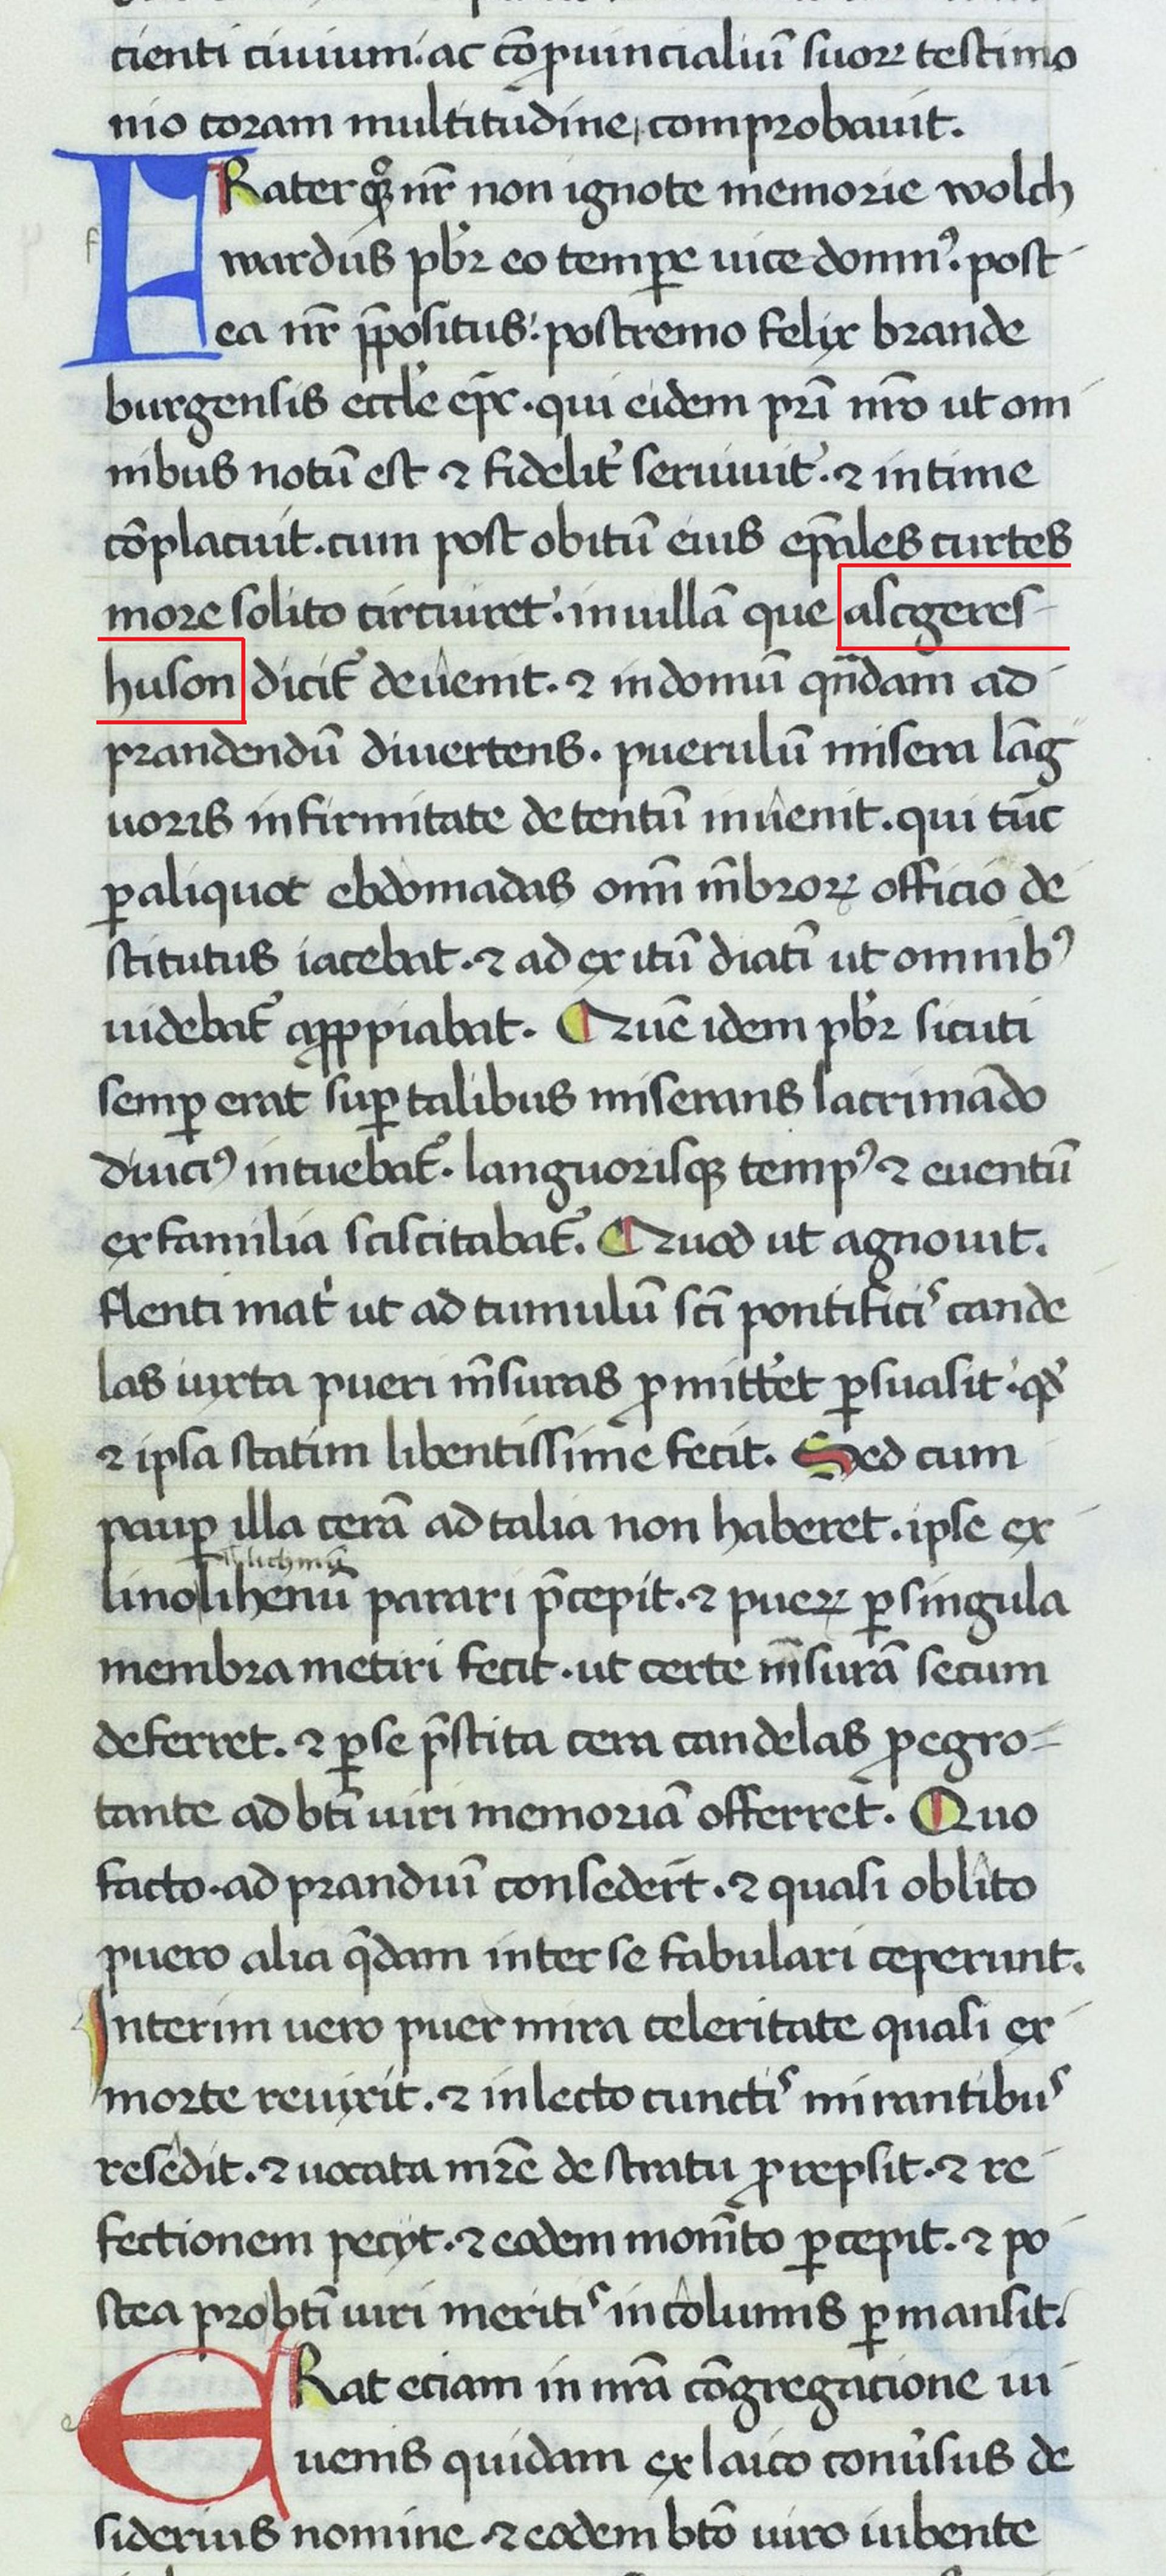 cienti ciuium. ac cō ꝓuincialiū suoꝝ testimo
nio coram multitudine, comprobauit.
FRater qͦꝫ nr̄ non ignote memorie wolch
wardus pbr̄ eo tempꝑe uice domnꝰ. post
ea nr̄ p̄positus. postremo felix brande
burgensis eccl'e ep̄c. qui eidem pr̄i nr̄o ut om
nibus notū est ⁊ fidelit' seruiuit. ⁊ intime
cōplacuit. cum post obitū eius ep̄ales curtes
more solito circuiret. in uillā que ascgeres-
huson dicit' deuenit. ⁊ in domū qn̄dam ad
prandendū diuertens. puerulū misera lāg
uoris infirmitate detentū inuenit. qui tūc
ꝑ aliquot ebdomadas omī m̄broꝝ officio de
stitutus iacebat. ⁊ ad exitū diatī ut omnibꝰ
uidebat' aꝓpiabat. Quē idem pbr̄ sicuti
semꝑ erat suꝑ talibus miserans lacrimādo
diuciꝰ intuebat'. languorisqꝫ tempꝰ ⁊ euentū
ex familia sciscitabat'. Quod ut agnouit.
flenti mat'i ut ad tumulū sc̄i pontificis cande
las iuxta pueri m̄suras ꝓmitt'et ꝑsuasit. qd'
⁊ ipsa statim libentissime fecit. Sed cum
pauꝑ illa cerā ad talia non haberet. ipse ex
lichmū
lino lihenū parari p̄cepit. ⁊ pueꝝ ꝑ singula
membra metiri fecit. ut certe m̄surā secum
deferret. ⁊ ꝑ se p̄stita cera candelas ꝓ egro-
tante ad bt̄i uiri memoriā offerret. Quo
facto. ad prandiū consedert̄. ⁊ quasi oblito
puero alia q̄dam inter se fabulari ceperunt.
Interim uero puer mira celeritate quasi ex
morte reuixit. ⁊ in lecto cunctis mirantibus
resedit. ⁊ uocata mr̄e de stratu ꝓrepsit. ⁊ re
fectionem pecyt. ⁊ eodem mom̄to ꝑcepit. ⁊ po
stea pro bt̄i uiri meritis incolumis ꝑmansit.
ERat eciam in nr̄a cōgregacione iu
uenis quidam ex laico conu'sus de
siderius nomine ⁊ eodem bt̄o uiro iubente